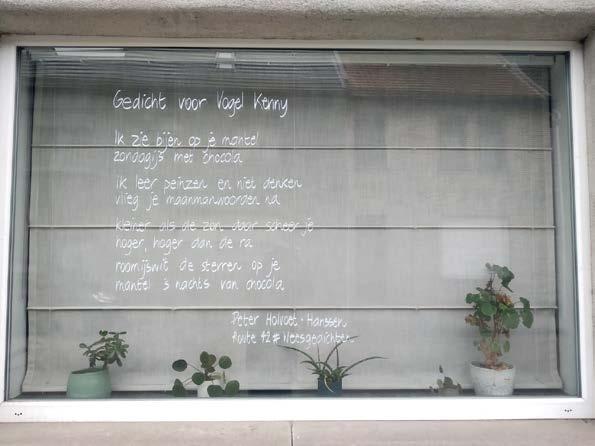 Gedicht voor Vogel Kenny
Ik zie bijen op je mantel
zondagijs met chocola
ik leer peinzen en niet denken
vlieg je maanmanwoorden na
kleiner als de zon daar scheer je
hoger, hoger dan de ra
roomijswit de sterren op je
mantel 's nachts van chocola
Peter Holvoet-Hanssen
Route 42# Fietsgedichten